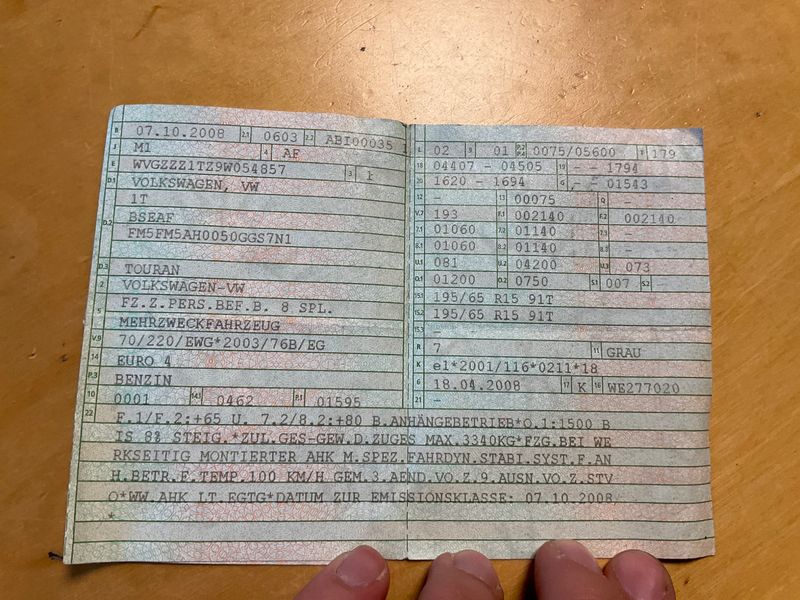 B 07.10.2008 2.1 0603 2.2 ABI00035 1
J M1 4 AF
E WVGZZZ1TZ9W054857 3 1
D.1 VOLKSWAGEN, VW
1T
D.2 BSEAF
FM5FM5AH0050GGS7N1
D.3 TOURAN
2 VOLKSWAGEN-VW
5 FZ.Z.PERS.BEF.B. 8 SPL.
MEHRZWECKFAHRZEUG
V.9 70/220/EWG*2003/76B/EG
14 EURO 4
P.3 BENZIN
10 0001 14.1 0462 P.1 01595
L 02 9 01 P.2 P.4 0075/05600 T 179
18 04407 - 04505 19 - - 1794
20 1620 - 1694 G - - 01543
12 - 13 00075 Q -
V.7 193 F.1 002140 F.2 002140
7.1 01060 7.2 01140 7.3 -
8.1 01060 8.2 01140 8.3 -
U.1 081 U.2 04200 U.3 073
O.1 01200 O.2 0750 S.1 007 S.2 -
15.1 195/65 R15 91T
15.2 195/65 R15 91T
15.3 -
R 7 11 GRAU
K e1*2001/116*0211*18
6 18.04.2008 17 K 16 WE277020
21 -
22 F.1/F.2:+65 U. 7.2/8.2:+80 B.ANHÄNGEBETRIEB*O.1:1500 B
IS 8% STEIG.*ZUL.GES-GEW.D.ZUGES MAX.3340KG*FZG.BEI WE
RKSEITIG MONTIERTER AHK M.SPEZ.FAHRDYN.STABI.SYST.F.AN
H.BETR.F.TEMP.100 KM/H GEM.3.AEND.VO.Z.9.AUSN.VO.Z.STV
O*WW.AHK LT.EGTG*DATUM ZUR EMISSIONSKLASSE: 07.10.2008
*